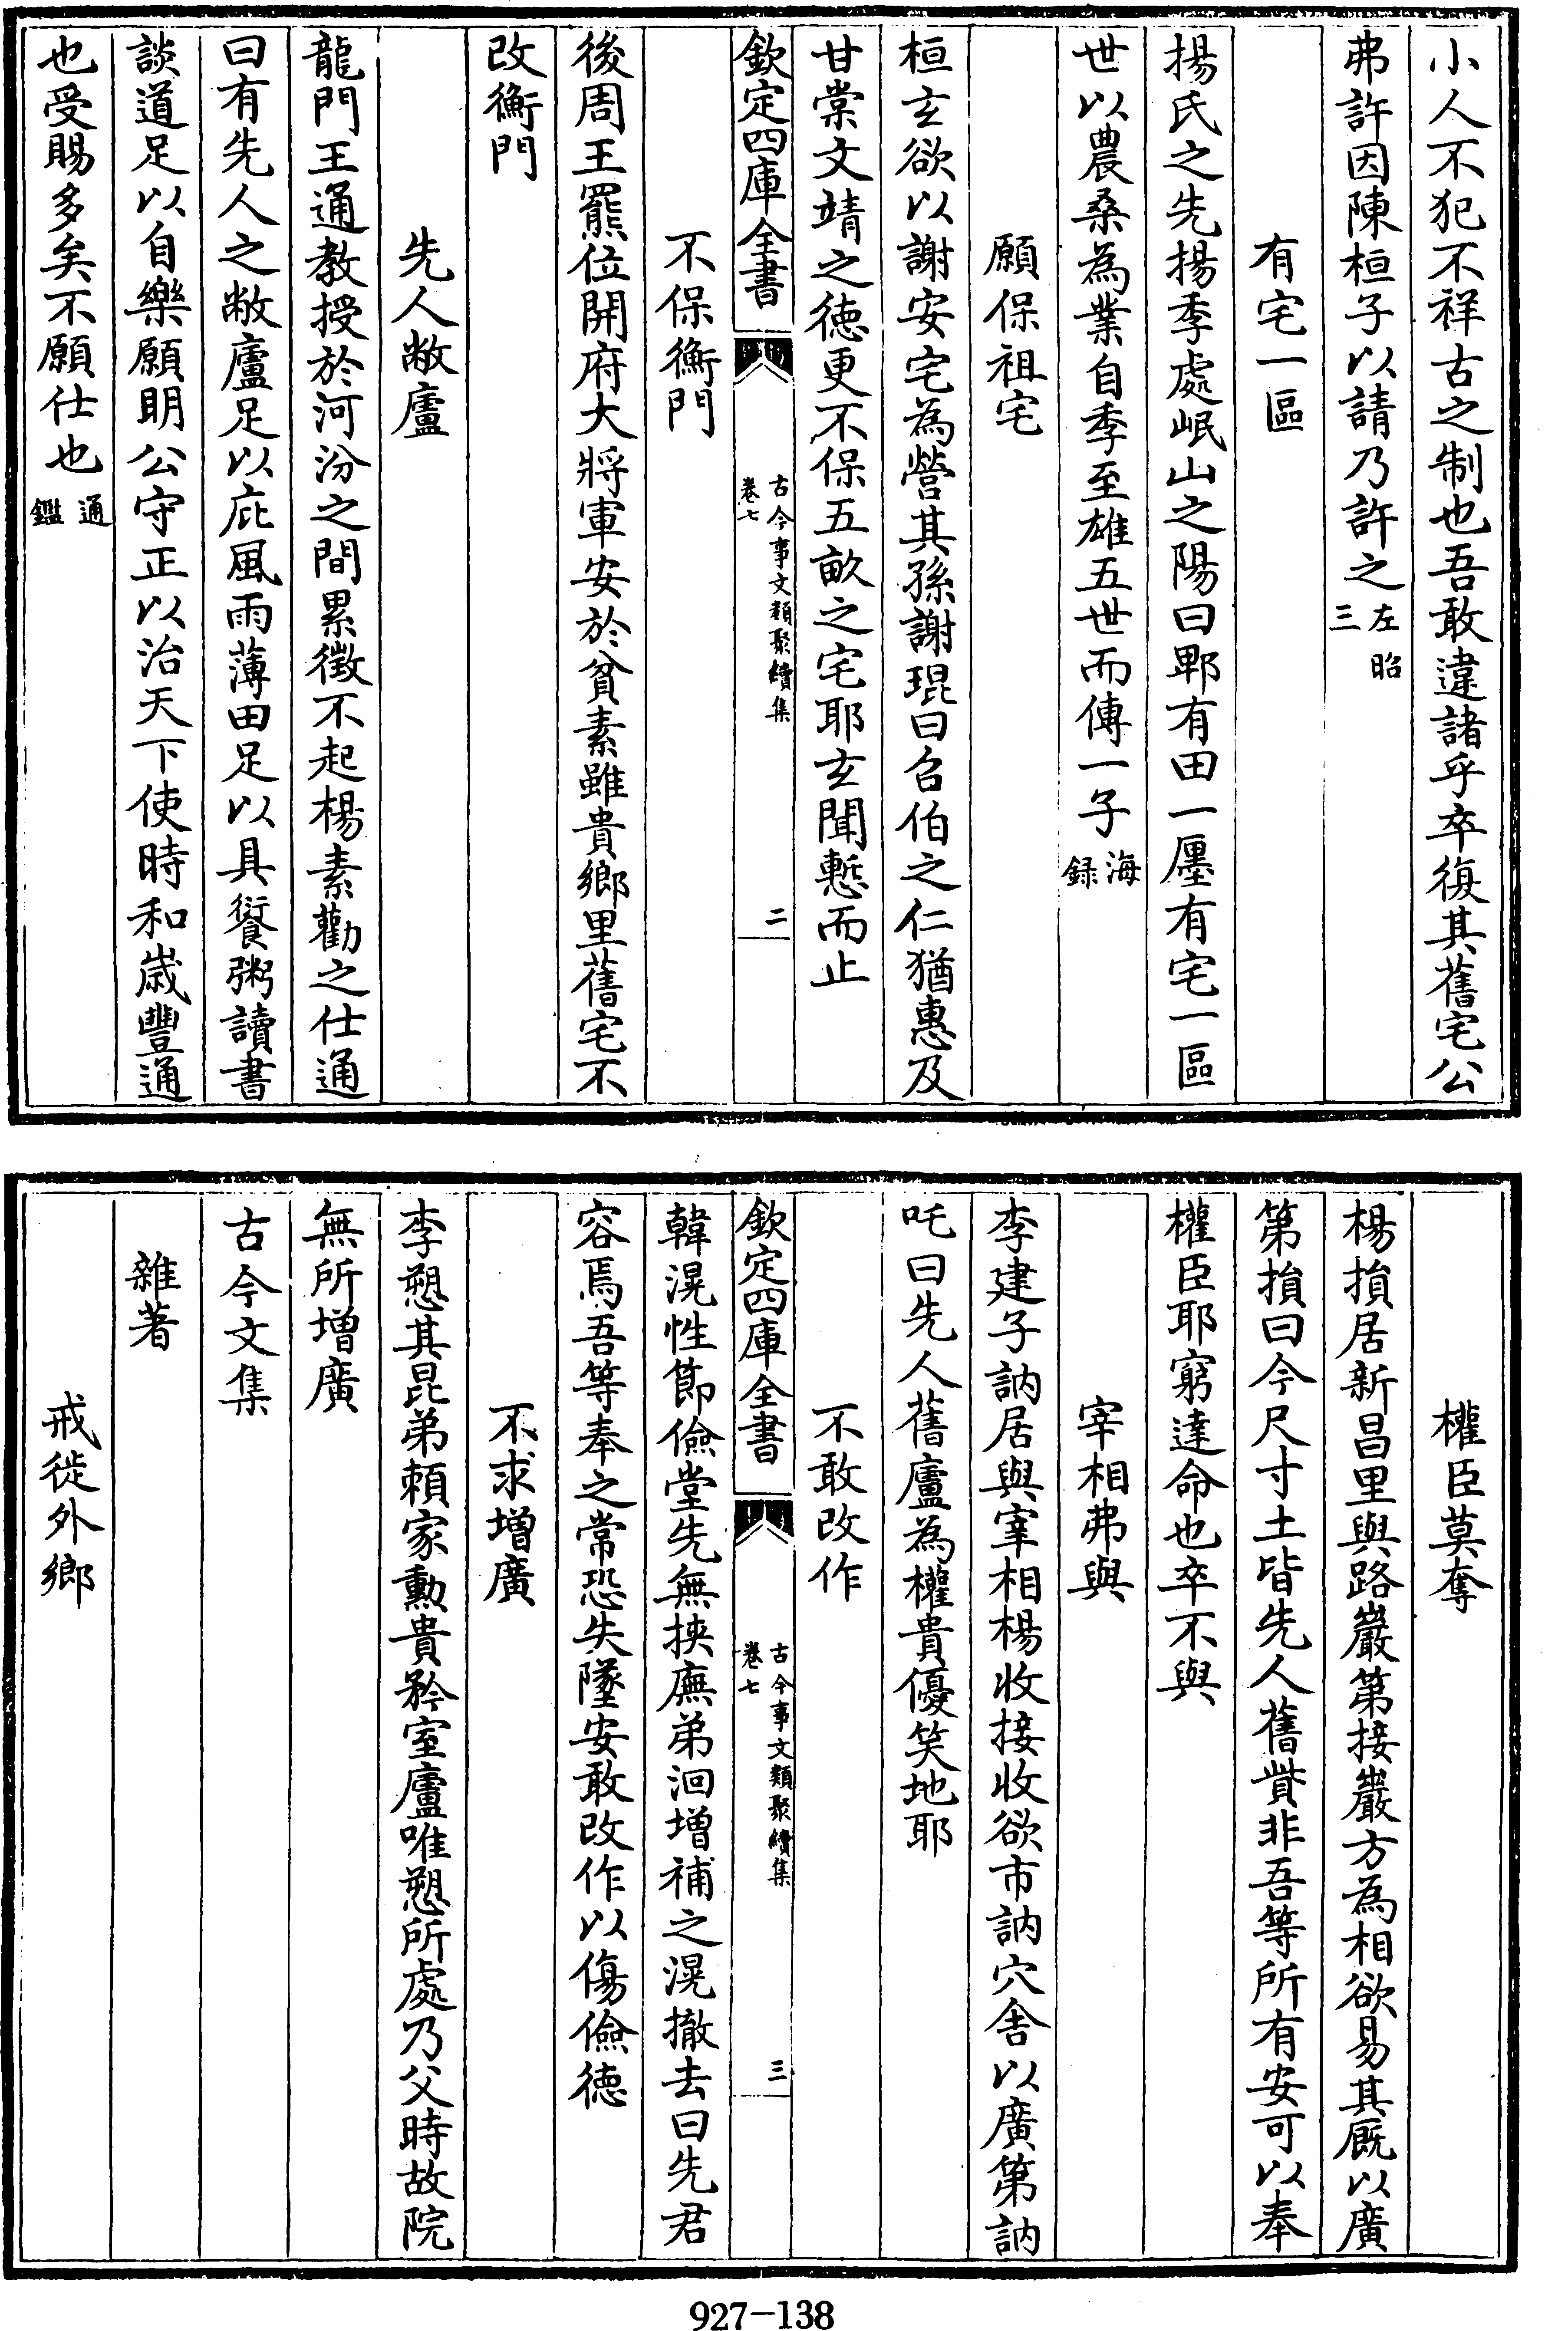 小人不犯不祥古之制也吾敢違諸乎卒復其舊宅公
弗許因陳桓子以請乃許之左昭三
有宅一區
揚氏之先揚季處岷山之陽曰郫有田一㕓有宅一區
世以農桑為業自季至雄五世而傳一子海録
願保祖宅
桓玄欲以謝安宅為營其孫謝琨曰召伯之仁猶惠及
甘棠文靖之德更不保五畝之宅耶玄聞慙而止
欽定四庫全書
古今事文類聚續集
卷七
二
不保衡門
後周王羆位開府大將軍安於貧素雖貴鄉里舊宅不
改衡門
先人敝廬
龍門王通教授於河汾之間累徵不起楊素勸之仕通
曰有先人之敝廬足以庇風雨薄田足以具饘粥讀書
談道足以自樂願明公守正以治天下使時和歲豐通
也受賜多矣不願仕也通鑑
權臣莫奪
楊損居新昌里與路巖第接巖方為相欲易其厩以廣
第損曰今尺寸土皆先人舊貲非吾等所有安可以奉
權臣耶窮達命也卒不與
宰相弗與
李建子訥居與宰相楊收接收欲市訥穴舍以廣第訥
吒曰先人舊廬為權貴優笑地耶
不敢改作
欽定四庫全書
古今事文類聚續集
卷七
三
韓滉性節儉堂先無挾廡弟洄增補之滉撤去曰先君
容焉吾等奉之常恐失墜安敢改作以傷儉德
不求增廣
李愬其昆弟賴家勳貴矜室廬唯愬所處乃父時故院
無所增廣
古今文集
雜著
戒徙外鄉
927-138